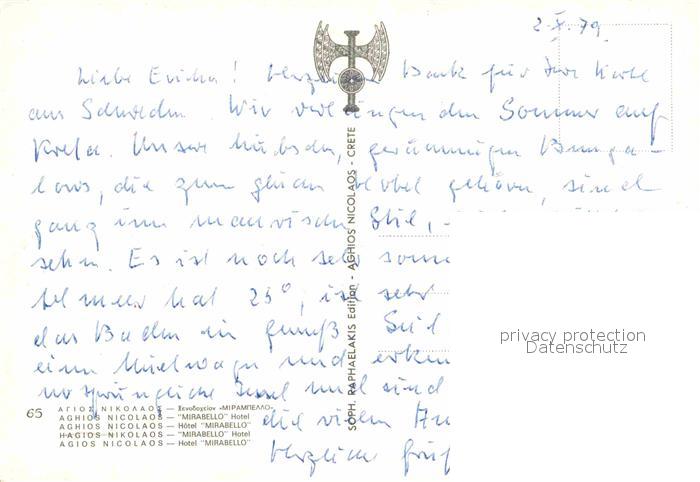 2.X.79
Liebe Erika! Herzlichen Dank für Ihre Karte
aus Schweden. Wir verbringen den Sommer auf
Kreta. Unsere hübschen, geräumigen Bunga-
lows, die zum gleichen gehören, sind
ganz im maurischen Stil,
sehen. Es ist noch sehr
meer hat 25°, ist sehr
das Baden ein Genuß. Seit
einen Mietwagen und
ursprüngliche Insel und sind
die vielen
Herzliche
SOPH. RAPHAELAKIS Edition - AGHIOS NICOLAOS - CRETE
privacy protection
Datenschutz
65
ΑΓΙΟΣ ΝΙΚΟΛΑΟΣ — Ξενοδοχείον «ΜΙΡΑΜΠΕΛΛΟ»
AGHIOS NICOLAOS — "MIRABELLO" Hotel
AGHIOS NICOLAOS — Hôtel "MIRABELLO"
HAGIOS NIKOLAOS — "MIRABELLO" Hotel
AGIOS NICOLAOS — Hotel "MIRABELLO"